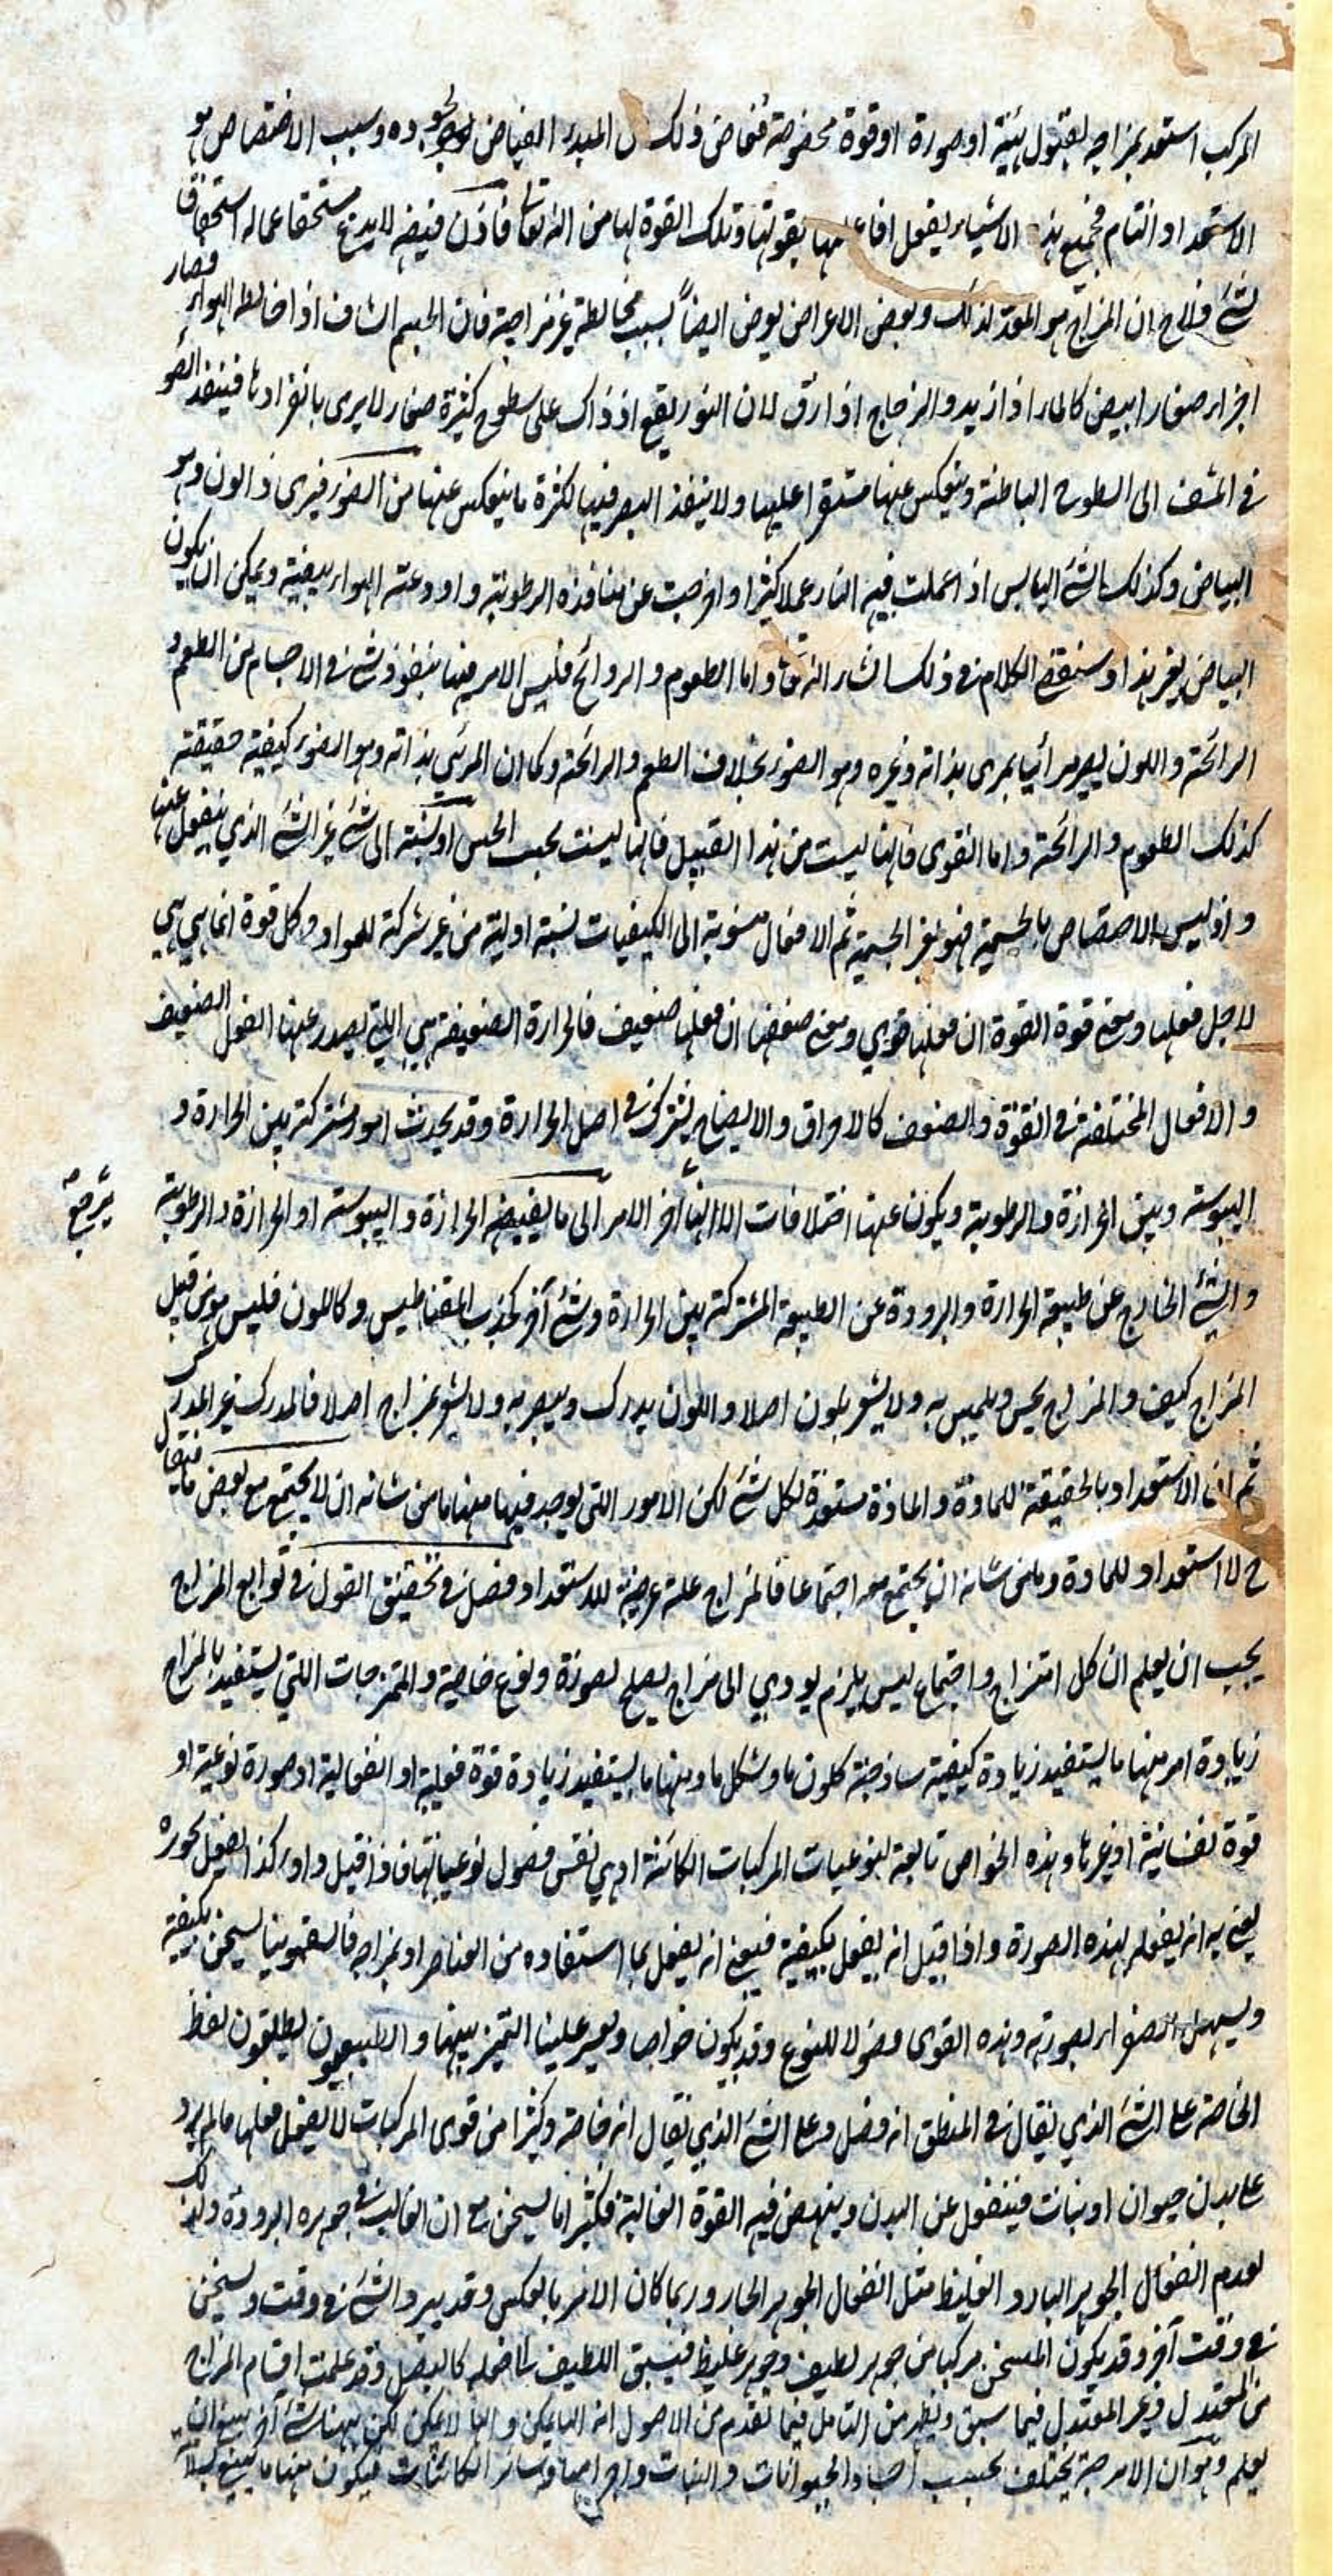 المركب استعد بمزاجه لقبول هيئة او صورة او قوة مخصوصة فتفاض ذلك من المبدء الفياض لوجوده وسبب الاختصاص هو
الاستعداد التام فجميع هذه الاشياء يفعل افاعيلها بقوتها وتلك القوة لها من الله تعالى فاذن فيضه لا يدع مستحقا عما له استحقاق
لشئ فلاح ان المزاج هو المعد لذلك وبعض الاعراض يعرض ايضاً بسبب مخالطة غير مزاجية فان الجسم الشاف اذا خالطه الهواء فصار
اجزاء صغارا ابيض كالماء اذا ازبد والزجاج اذا دق لان النور يقع اذ ذاك على سطوح كثيرة صغار لا يرى بانفرادها فينفذ الضوء
في المشف الى السطوح الباطنة وينعكس عنها مستقرا عليها ولا ينفذ البصر فيها لكثرة ما ينعكس عنها من الضوء فيرى ذا لون وهو
البياض وكذلك الشئ اليابس اذا عملت فيه النار عملا كثيرا واخرجت عن منافذه الرطوبة واودعته الهواء بيضته ويمكن ان يكون
البياض بغير هذا وسنقضي الكلام في ذلك ان شاء الله تعالى واما الطعوم والروائح فليس الامر فيها بنفوذ شئ في الاجسام من الطعم و
الرائحة واللون يصير مرأيا بمرى بذاته وغيره وهو الضوء بخلاف الطعم والرائحة وكما ان المرئي بذاته وهو الضوء كيفية حقيقته
كذلك الطعوم والرائحة واما القوى فانها ليست من هذا القبيل فانها ليست بحسب الحس او نسبته الى شئ غير الشئ الذي ينفعل عنها
واذ ليس الاختصاص بالجسمية فهو لغير الجسمية ثم الافعال منسوبة الى الكيفيات نسبة اولية من غير شركة للمواد وكل قوة انما هي هي
لاجل فعلها ومعنى قوة القوة ان فعلها قوي ومعنى ضعفها ان فعلها ضعيف فالحرارة الضعيفة هي اللتي يصدر عنها الفعل الضعيف
والافعال المختلفة في القوة والضعف كالاحراق والانضاج يشترك في اصل الحرارة وقد يحدث امور مشتركة بين الحرارة و
اليبوسة وبين الحرارة والرطوبة ويكون عنها اختلافات الا انها آخر الامر الى ما يقتضيه الحرارة واليبوسة او الحرارة والرطوبة يرجع
والشئ الخارج عن طبيعة الحرارة والبرودة عن الطبيعة المشتركة بين الحرارة وشئ آخر كجذب المقناطيس وكاللون فليس هو من قبيل
المزاج كيف والمزاج يحس ويلمس به ولا يشعر بلون اصلا واللون يدرك ويبصر به ولا يشعر بمزاج اصلا فالمدرك غير المدرك
ثم ان الاستعداد بالحقيقة للمادة والمادة مستعدة لكل شئ لكن الامور اللتي يوجد فيها منها ما من شانه ان لا يجتمع مع بعض ما يتقابل
ح لا استعداد للمادة وما من شانه ان يجتمع معه اجتماعا فالمزاج علة عرضية للاستعداد فصل في تحقيق القول في توابع المزاج
يجب ان يعلم ان كل امتزاج واجتماع ليس يلزم يودي الى مزاج يصلح لصورة ونوع خاصية والممتزجات اللتي يستفيد بالمزاج
زيادة امر منها ما يستفيد زيادة كيفية ساذجة كلون ما وشكل ما ومنها ما يستفيد زيادة قوة فعلية او انفعالية او صورة نوعية او
قوة نفسانية او غيرها وهذه الخواص تابعة لنوعيات المركبات الكائنة اذ هي نفس فصول نوعياتها فاذا قيل دواء كذا يفعل بجوهره
يعنى به انه يفعله بهذه الصورة واذا قيل انه يفعل بكيفية فيعنى انه يفعل بما استفاده من العناصر او بمزاجه فالسقمونيا يسخن بكيفيته
ويسهل الصفراء بصورته وهذه القوى فصولا للنوع وقد يكون خواصا ويعسر علينا التميز بينهما والطبيعيون يطلقون لفظ
الخاصة على الشئ الذي يقال في المنطق انه فصل وعلى الشئ الذي يقال انه خاصة وكثيرا من قوى المركبات لا يفعل فعلها ما لم يرد
على بدن حيوان او نبات فينفعل عن البدن وينهض فيه القوة الفعالية فكثيرا ما يسخن مع ان الغالب في جوهره البرودة وذلك
لعدم انفعال الجوهر البارد الغليظ مثل انفعال الجوهر الحار وربما كان الامر بالعكس وقد يبرد الشئ في وقت ويسخن
في وقت آخر وقد يكون المسخن مركبا من جوهر لطيف وجوهر غليظ فيسبق اللطيف كالبصل وقد علمت اقسام المزاج
من المعتدل وغير المعتدل فيما سبق ويظهر من التامل فيما تقدم من الاصول انه ايها يمكن وايها لا يمكن لكن ههنا شئ آخر
يعلم وهو ان الامزجة يختلف بحسب اجساد الحيوانات والنبات واجرامها وسائر الكائنات فيكون منها ما